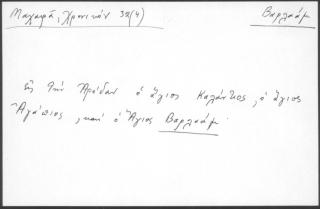 Μαχαιρᾶ, Χρονικόν 32(4) Βαρλαάμ
εἰς τὴν Ἀράδαν ὁ ἅγιος Καλάντιος, ὁ ἅγιος
Ἀγάπιος, καὶ ὁ Ἅγιος Βαρλαάμ.